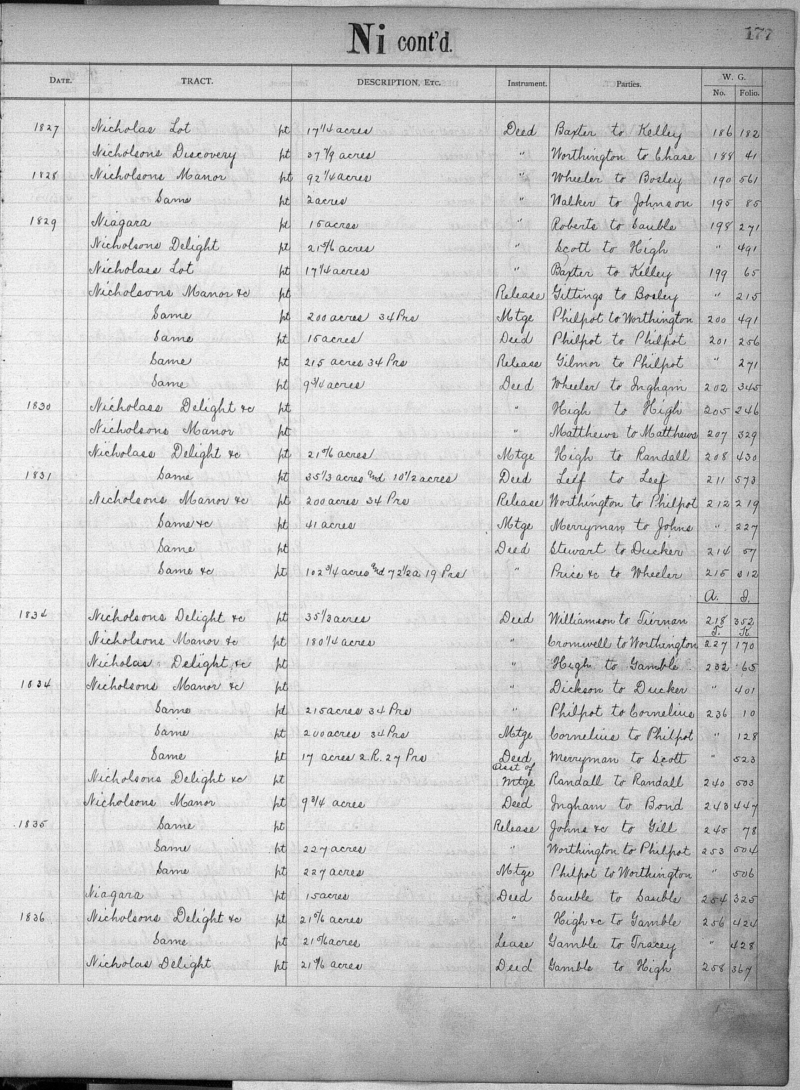 Ni cont'd.
177
DATE. TRACT. DESCRIPTION, ETC. Instrument. Parties. W. G.
No. Folio.
1827 Nicholas Lot pt 17 1/4 acres Deed Baxter to Kelley 186 182
Nicholsons Discovery pt 37 7/9 acres " Worthington to Chase 188 41
1828 Nicholsons Manor pt 92 1/4 acres " Wheeler to Bosley 190 561
Same pt 2 acres " Walker to Johnson 195 85
1829 Niagara pt 15 acres " Roberts to Sauble 198 271
Nicholsons Delight pt 21 5/6 acres " Scott to High " 491
Nicholass Lot pt 17 1/4 acres " Baxter to Kelley 199 65
Nicholsons Manor &c pt Release Gittings to Bosley " 215
Same pt 200 acres 34 Prs Mtge Philpot to Worthington 200 491
Same pt 15 acres Deed Philpot to Philpot 201 256
Same pt 215 acres 34 Prs Release Gilmor to Philpot " 271
Same pt 9 3/4 acres Deed Wheeler to Ingham 202 345
1830 Nicholass Delight &c pt " High to High 205 246
Nicholsons Manor pt " Matthews to Matthews 207 329
Nicholass Delight &c pt 21 5/6 acres Mtge High to Randall 208 430
1831 Same pt 35 1/3 acres and 10 1/2 acres Deed Leif to Leef 211 573
Nicholsons Manor &c pt 200 acres 34 Prs Release Worthington to Philpot 212 219
Same &c pt 41 acres Mtge Merryman to Johns " 227
Same pt Deed Stewart to Ducker 214 57
Same &c pt 102 3/4 acres and 72 1/2 a 19 Prs " Price &c to Wheeler 215 312
A. J.
1834 Nicholsons Delight &c pt 35 1/3 acres Deed Williamson to Tiernan 218 352
T. K
Nicholsons Manor &c pt 180 1/4 acres " Cromwell to Worthington 227 170
Nicholas Delight &c pt " High to Gamble 232 65
1834 Nicholsons Manor &c pt " Dickson to Ducker " 401
Same pt 215 acres 34 Prs " Philpot to Cornelius 236 10
Same pt 200 acres 34 Prs Mtge Cornelius to Philpot " 128
Same pt 17 acres 2 R. 27 Prs Deed Merryman to Scott " 523
Asst of
Nicholsons Delight &c pt Mtge Randall to Randall 240 503
Nicholsons Manor pt 9 3/4 acres Deed Ingham to Bond 243 447
1835 Same pt Release Johns &c to Gill 245 78
Same pt 227 acres " Worthington to Philpot 253 504
Same pt 227 acres Mtge Philpot to Worthington " 506
Niagara pt 15 acres Deed Sauble to Sauble 254 325
1836 Nicholsons Delight &c pt 21 5/6 acres " High &c to Gamble 256 424
Same pt 21 5/6 acres Lease Gamble to Tracey " 428
Nicholas Delight pt 21 5/6 acres Deed Gamble to High 258 367